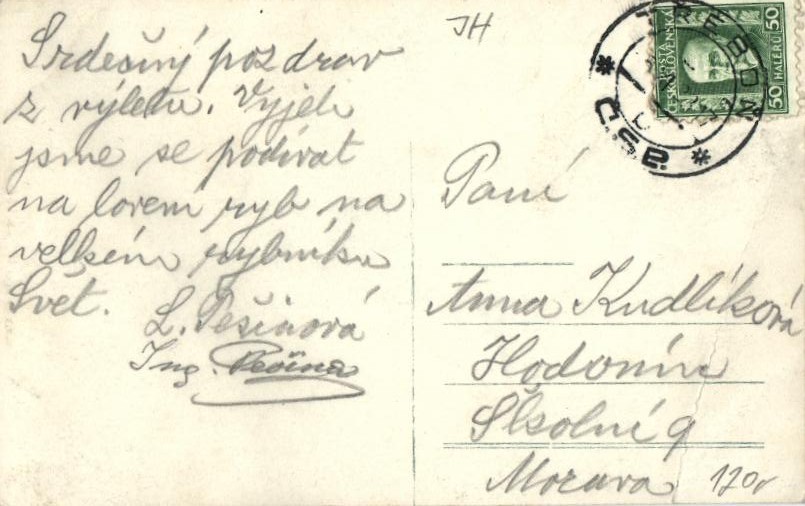 JH
Srdečný pozdrav
z výletu. Vyjeli
jsme se podívat
na lovem ryb na
velkém rybníku
Svět.
L. Pešinová
Ing. Pešina
TŘEBOŇ
* Č.S.P. *
POSTA
ČESKOSLOVENSKÁ
50 HALÉRŮ 50
Paní
Anna Kudlíková
Hodonín
Školní 9
Morava
120,-